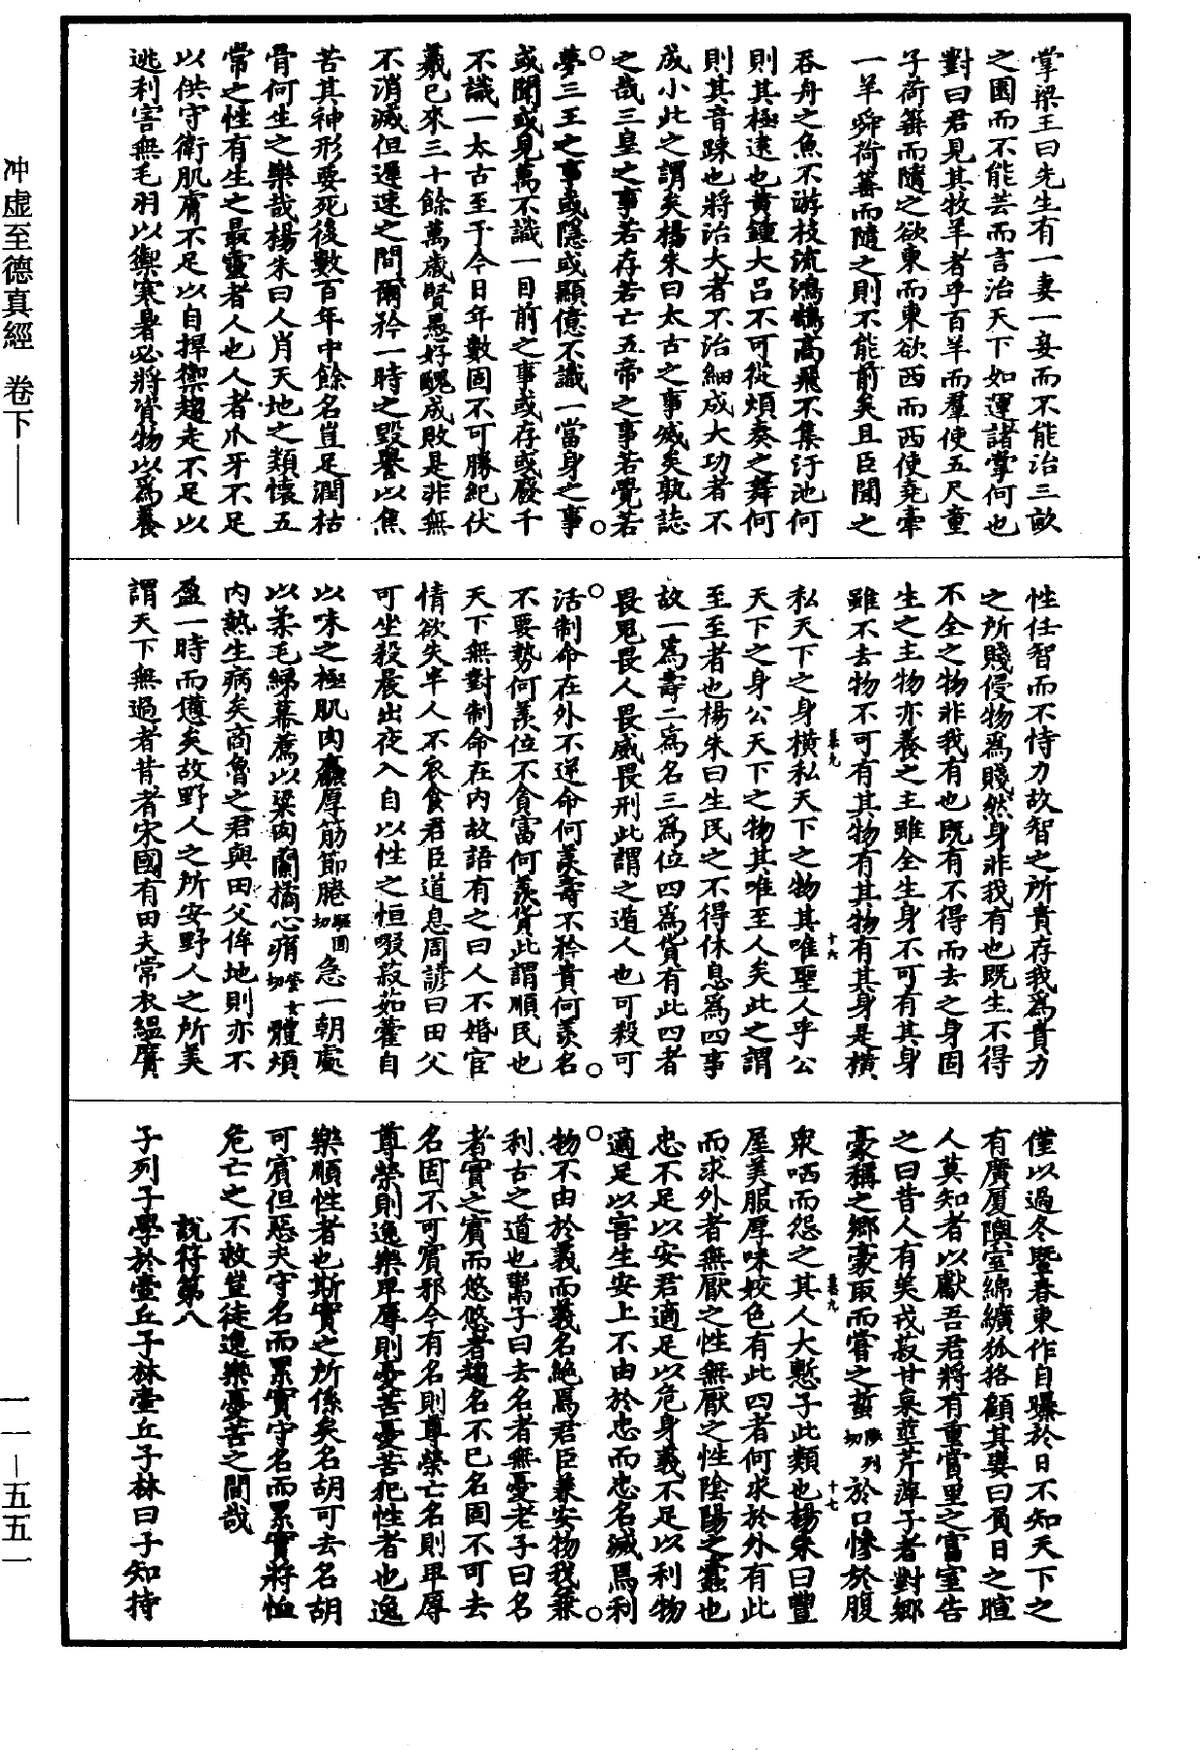 冲虚至德真經　卷下
一一—五五一
掌梁王曰先生有一妻一妾而不能治三畝
之園而不能芸而言治天下如運諸掌何也
對曰君見其牧羊者乎百羊而羣使五尺童
子荷箠而隨之欲東而東欲西而西使堯牽
一羊舜荷箠而隨之則不能前矣且臣聞之
吞舟之魚不游枝流鴻鵠高飛不集汙池何
則其極遠也黃鍾大呂不可從煩奏之舞何
則其音踈也將治大者不治細成大功者不
成小此之謂矣楊朱曰太古之事滅矣孰誌
之哉三皇之事若存若亡五帝之事若覺若
夢三王之事或隱或顯億不識一當身之事
或聞或見萬不識一目前之事或存或廢千
不識一太古至于今日年數固不可勝紀伏
羲已來三十餘萬歲賢愚好醜成敗是非無
不消滅但遲速之間爾矜一時之毀譽以焦
苦其神形要死後數百年中餘名豈足潤枯
骨何生之樂哉楊朱曰人肖天地之類懷五
常之性有生之最靈者人也人者爪牙不足
以供守衛肌膚不足以自捍禦趨走不足以
逃利害無毛羽以禦寒暑必將資物以爲養
性任智而不恃力故智之所貴存我爲貴力
之所賤侵物爲賤然身非我有也既生不得
不全之物非我有也既有不得而去之身固
生之主物亦養之主雖全生身不可有其身
雖不去物不可有其物有其物有其身是橫
私天下之身橫私天下之物其唯聖人乎公
天下之身公天下之物其唯至人矣此之謂
至至者也楊朱曰生民之不得休息爲四事
故一爲壽二爲名三爲位四爲貨有此四者
畏鬼畏人畏威畏刑此謂之遁人也可殺可
活制命在外不逆命何羨壽不矜貴何羨名
不要勢何羨位不貪富何羨貨此謂順民也
天下無對制命在內故語有之曰人不婚宦
情欲失半人不衣食君臣道息周諺曰田父
可坐殺晨出夜入自以性之恒啜菽茹藿自
以味之極肌肉麤厚筋節腃驅圓切急一朝處
以柔毛綈幕薦以粱肉蘭橘心痟縈女切體煩
內熱生病矣商魯之君與田父侔地則亦不
盈一時而憊矣故野人之所安野人之所美
謂天下無過者昔者宋國有田夫常衣縕黂
僅以過冬暨春東作自曝於日不知天下之
有廣厦隩室綿纊狐狢顧其妻曰負日之暄
人莫知者以獻吾君將有重賞里之富室告
之曰昔人有美戎菽甘枲莖芹萍子者對鄉
豪稱之鄉豪取而嘗之蜇陟列切於口慘於腹
衆哂而怨之其人大慙子此類也楊朱曰豐
屋美服厚味姣色有此四者何求於外有此
而求外者無厭之性無厭之性陰陽之蠹也
忠不足以安君適足以危身義不足以利物
適足以害生安上不由於忠而忠名滅焉利
物不由於義而義名絕焉君臣兼安物我兼
利古之道也鬻子曰去名者無憂老子曰名
者實之賓而悠悠者趨名不已名固不可去
名固不可賓邪今有名則尊榮亡名則卑辱
尊榮則逸樂卑辱則憂苦憂苦犯性者也逸
樂順性者也斯實之所係矣名胡可去名胡
可賓但惡夫守名而累實守名而累實將恤
危亡之不救豈徒逸樂憂苦之間哉
說符第八
子列子學於壺丘子林壺丘子林曰子知持